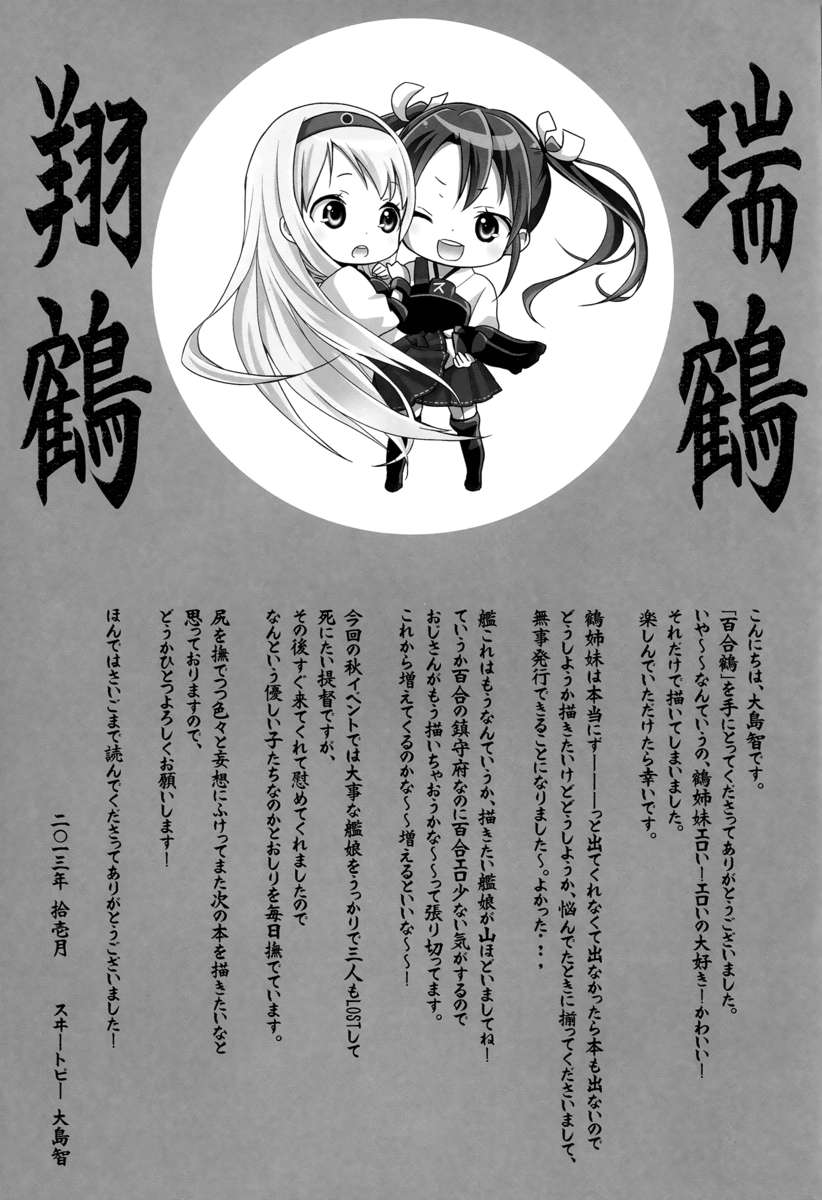 瑞鶴
翔鶴
ス
こんにちは、大島智です。
「百合鶴」を手にとってくださってありがとうございました。
いや〜〜なんていうの、鶴姉妹エロい!エロいの大好き!かわいい!
それだけで描いてしまいました。
楽しんでいただけたら幸いです。
鶴姉妹は本当にず―――っと出てくれなくて出なかったら本も出ないので
どうしようか描きたいけどどうしようか、悩んでたときに揃ってくださいまして、
無事発行できることになりました〜。よかった・・・
艦これはもうなんていうか、描きたい艦娘が山ほどいましてね!
ていうか百合の鎮守府なのに百合エロ少ない気がするので
おじさんがもう描いちゃおうかな〜〜って張り切ってます。
これから増えてくるのかな〜〜増えるといいな〜〜!
今回の秋イベントでは大事な艦娘をうっかりで三人もLOSTして
死にたい提督ですが、
その後すぐ来てくれて慰めてくれましたので
なんという優しい子たちなのかとおしりを毎日撫でています。
尻を撫でつつ色々と妄想にふけってまた次の本を描きたいなと
思っておりますので、
どうかひとつよろしくお願いします!
ほんではさいごまで読んでくださってありがとうございました!
二〇一三年 拾壱月 スヰートピー 大島智